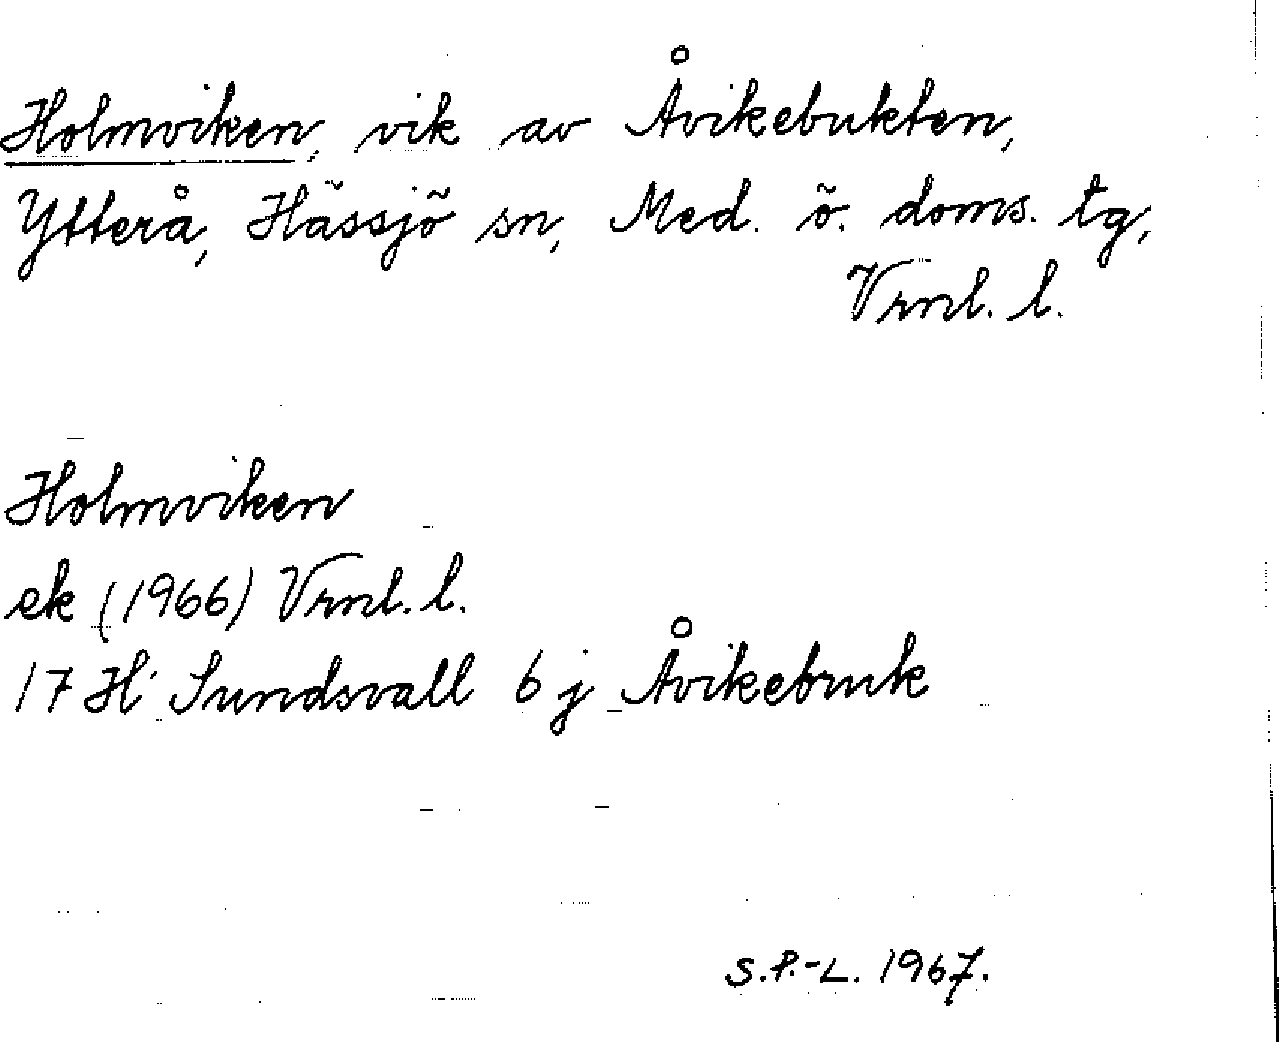 Holmviken, vik av Åvikebukten,
Ytterå, Hässjö sn, Med. ö. doms. tg,
Vrnl. l.
Holmviken
ek (1966) Vrnl. l.
17 H Sundsvall 6 j Åvikebruk
S.P.-L. 1967.